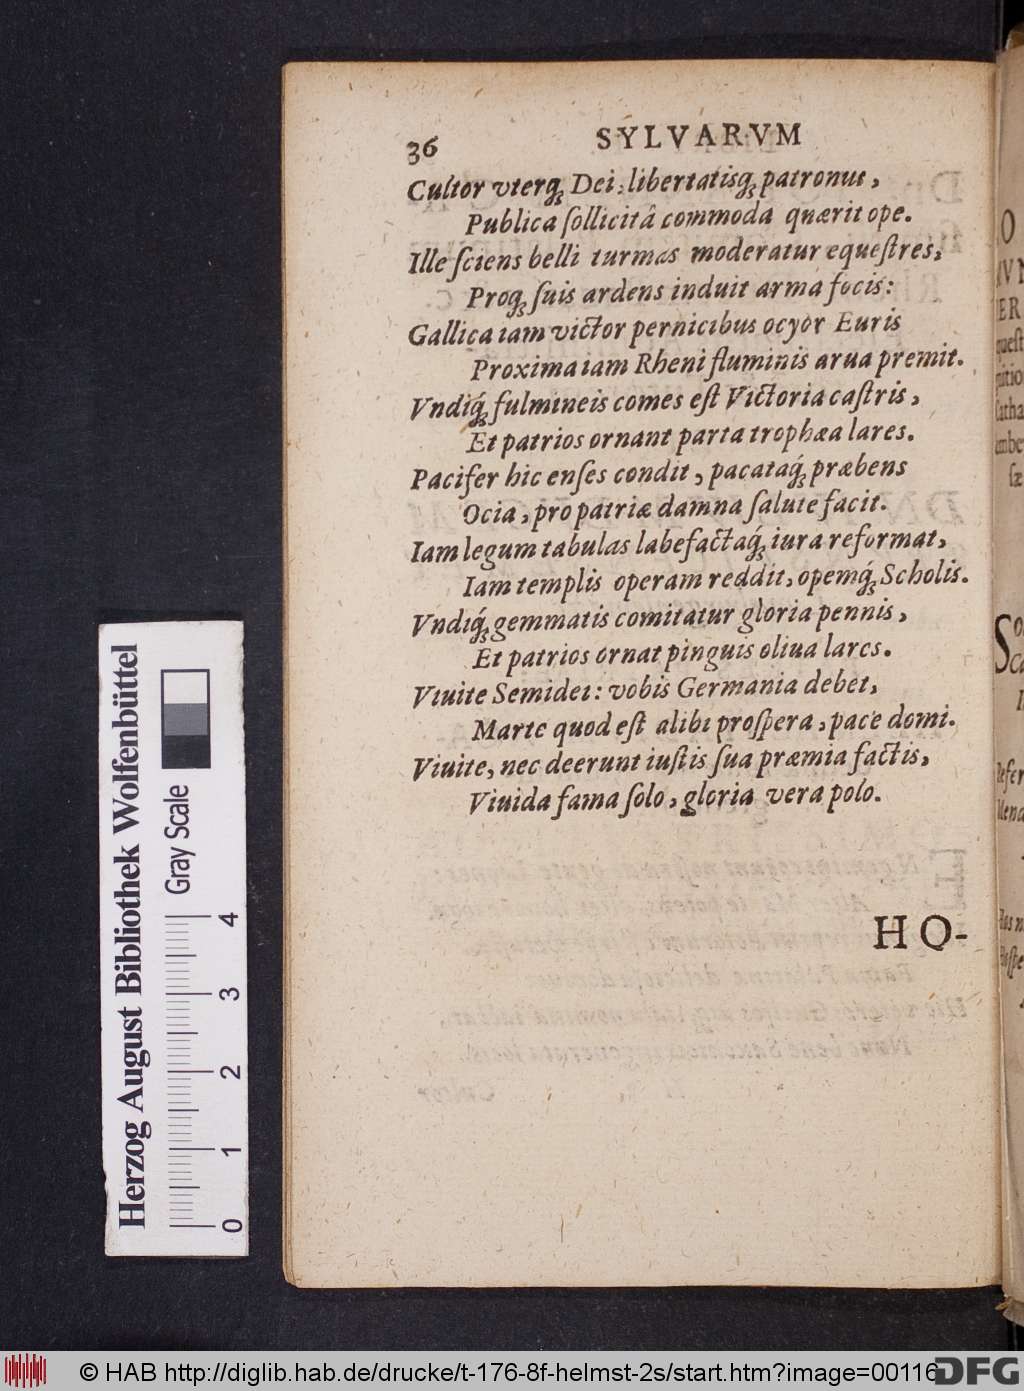 36 SYLVARVM
Cultor vterq́ꝫ Dei: libertatisq́ꝫ patronus,
Publica ſollicitâ commoda quærit ope.
Ille ſciens belli turmas moderatur equeſtres,
Proqꝫ ſuis ardens induit arma focis:
Gallica iam victor pernicibus ocyor Euris
Proxima iam Rheni fluminis arua premit.
Vndiq́ꝫ fulmineis comes eſt Victoria caſtris,
Et patrios ornant parta trophæa lares.
Pacifer hic enſes condit, pacataq́ꝫ præbens
Ocia, pro patriæ damna ſalute facit.
Iam legum tabulas labefactaq́ꝫ iura reformat,
Iam templis operam reddit, opemq́ꝫ Scholis.
Vndiq́ꝫ gemmatis comitatur gloria pennis,
Et patrios ornat pinguis oliua lares.
Viuite Semidei: vobis Germania debet,
Marte quod eſt alibi proſpera, pace domi.
Viuite, nec deerunt iuſtis ſua præmia factis,
Viuida fama ſolo, gloria vera polo.
HO-
Herzog August Bibliothek Wolfenbüttel
Gray Scale
0 1 2 3 4
© HAB http://diglib.hab.de/drucke/t-176-8f-helmst-2s/start.htm?image=00116
DFG